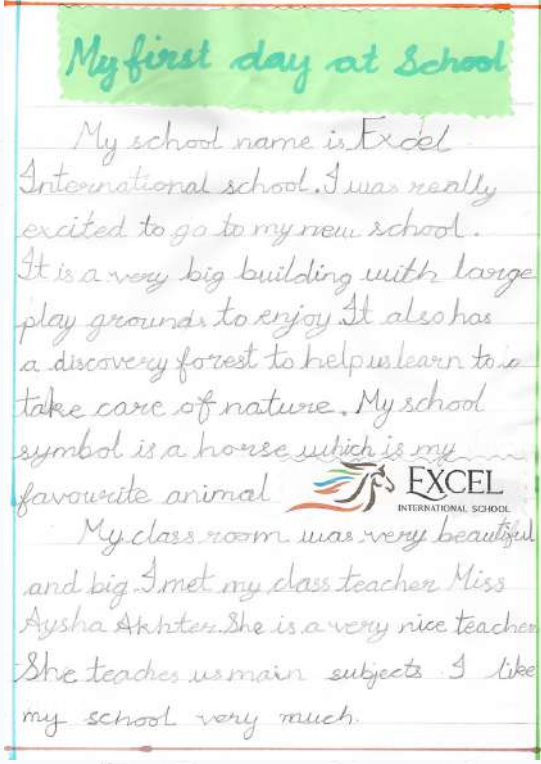 My first day at School
My school name is Excel
International school. I was really
excited to go to my new school.
It is a very big building with large
play grounds to enjoy. It also has
a discovery forest to help us learn to
take care of nature. My school
symbol is a horse which is my
favourite animal
EXCEL
INTERNATIONAL SCHOOL
My class room was very beautiful
and big. I met my class teacher Miss
Aysha Akhter. She is a very nice teacher
She teaches us main subjects. I like
my school very much.